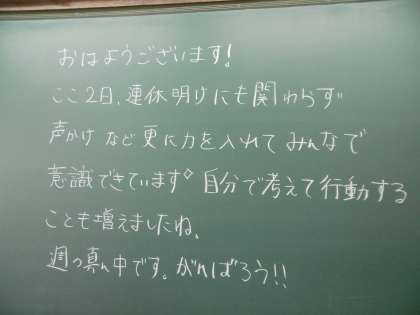 おはようございます!
ここ2日、連休明けにも関わらず
声かけなど更に力を入れてみんなで
意識できています◇自分で考えて行動する
ことも増えましたね、
週の真ん中です。がんばろう!!